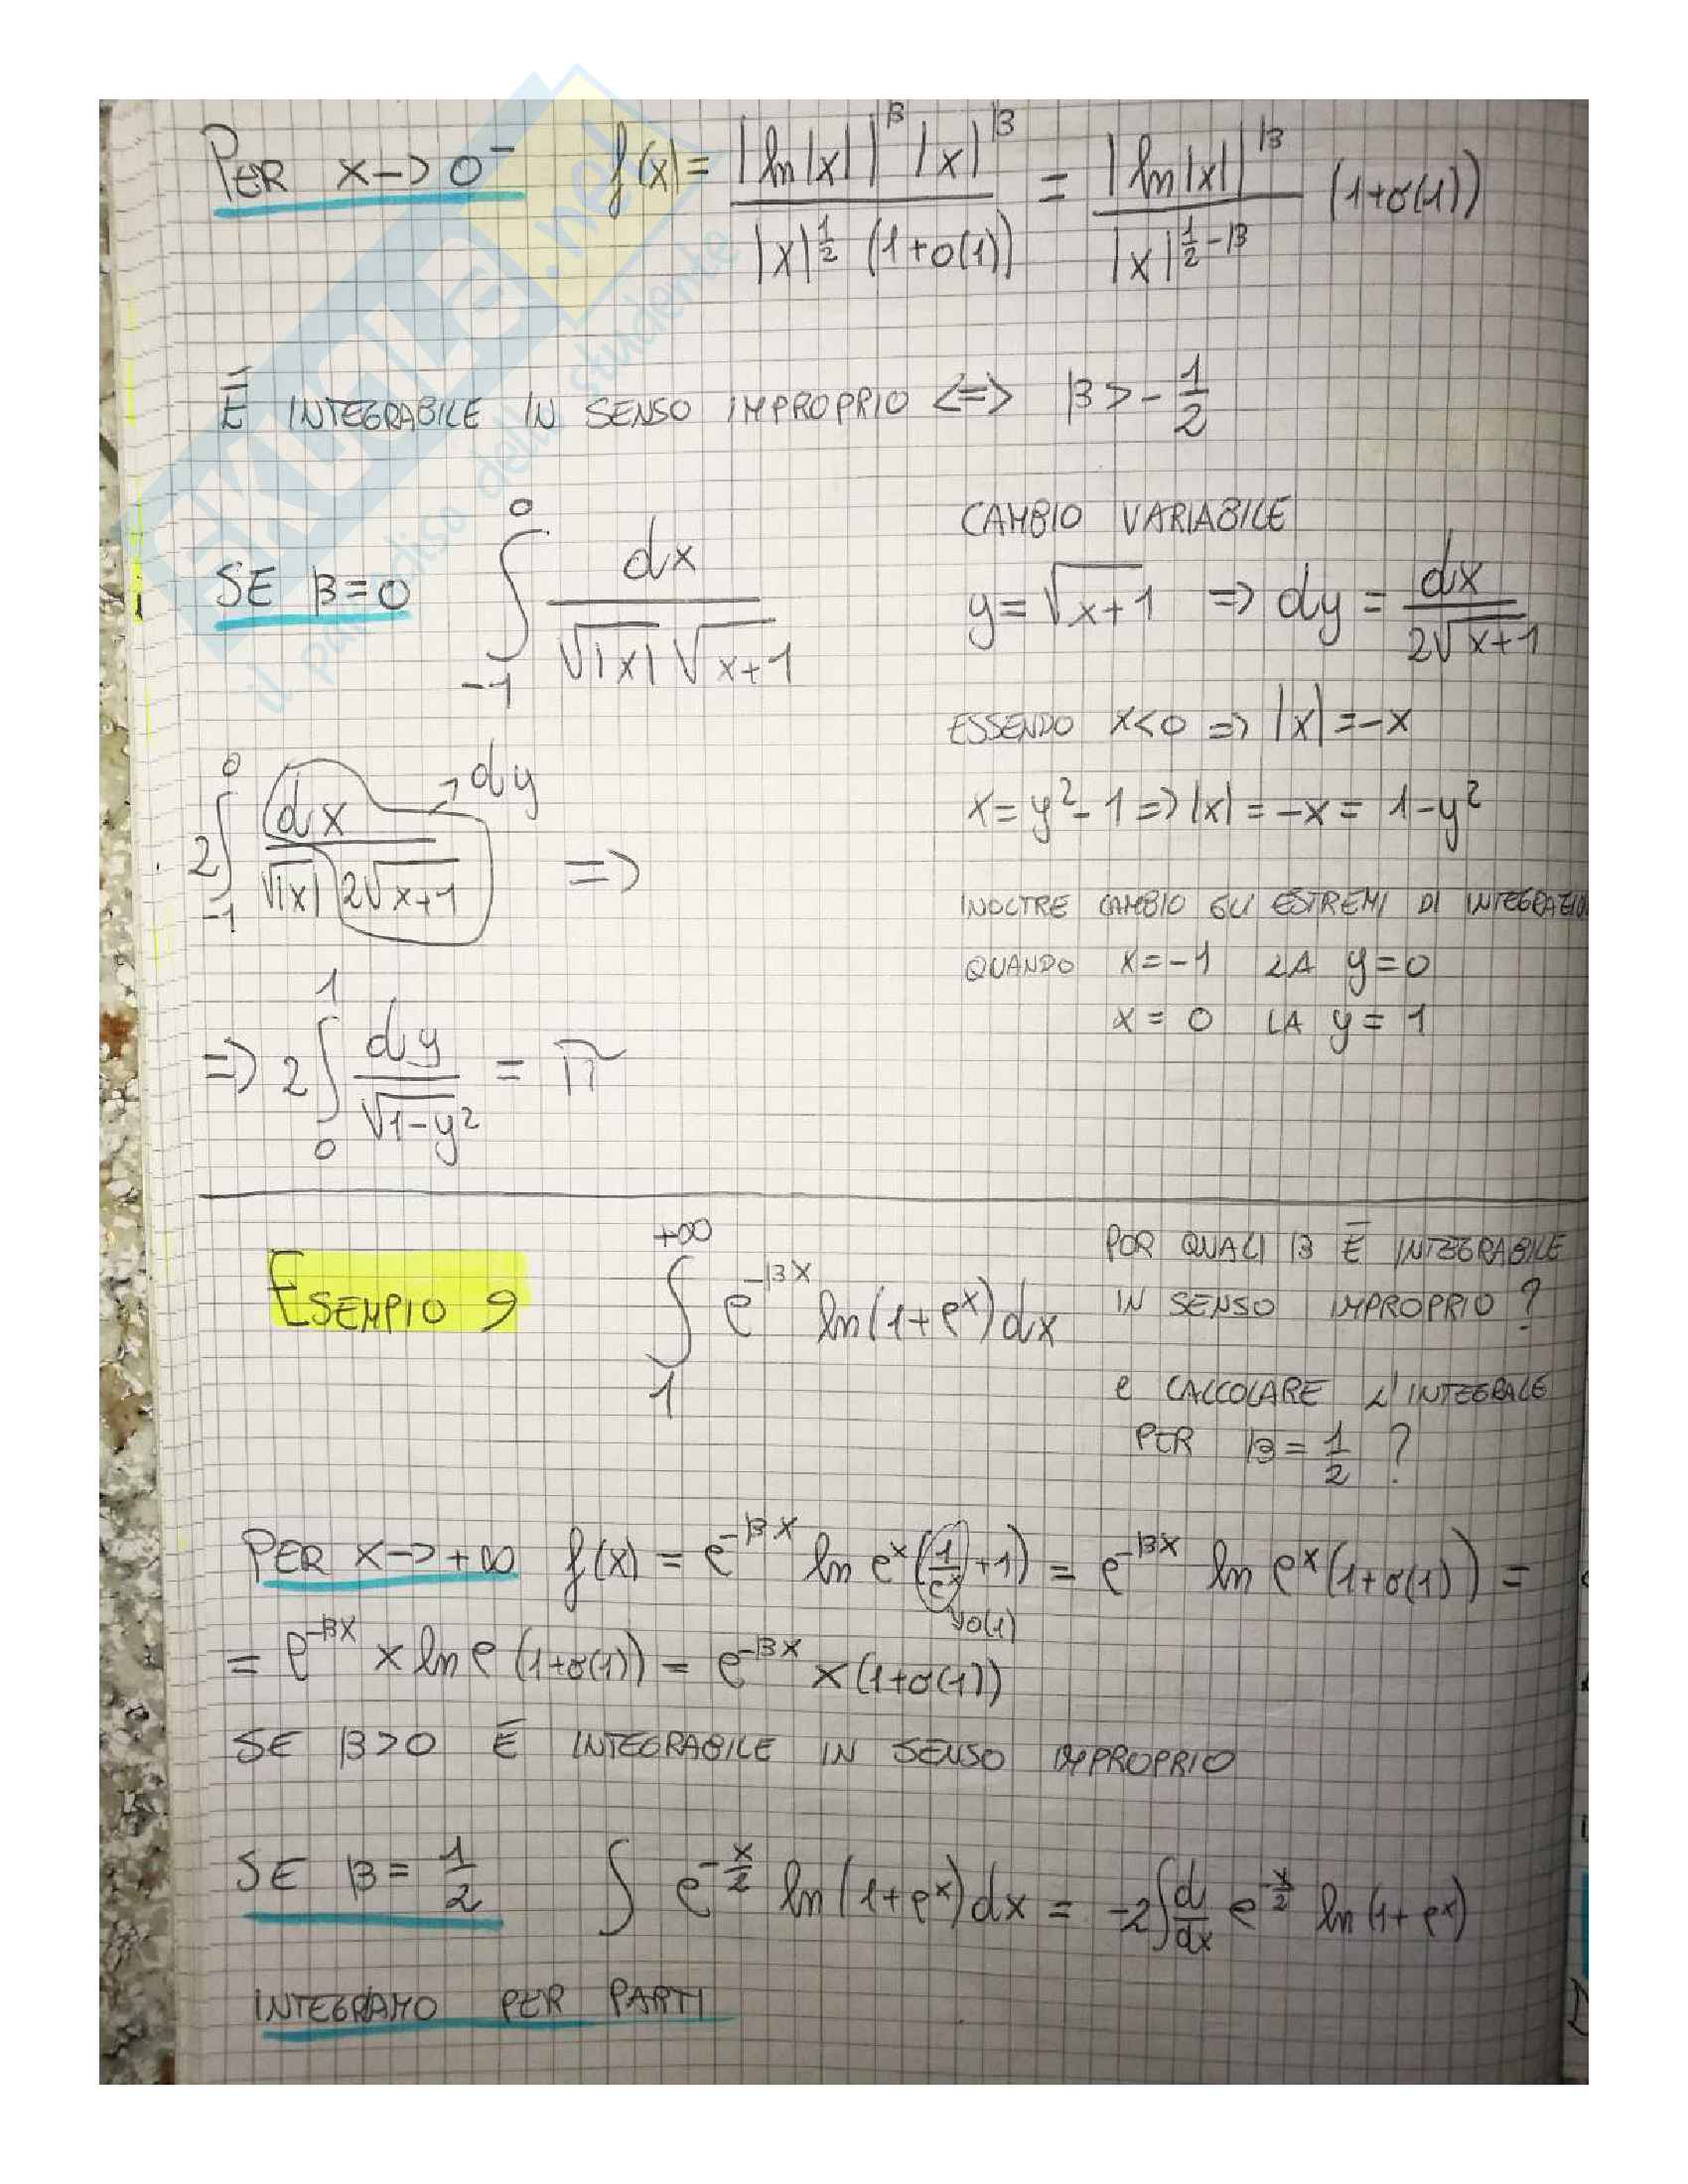 PER x->0⁻ f(x) = |ln|x||^β |x|^β / |x|^{1/2} (1+o(1)) = |ln|x||^β / |x|^{1/2-β} (1+o(1))
È INTEGRABILE IN SENSO IMPROPRIO <=> β > -1/2
SE β=0 ∫_{-1}^{0} dx / √|x| √x+1
CAMBIO VARIABILE
y = √x+1 => dy = dx / 2√x+1
ESSENDO x<0 => |x| = -x
x = y²-1 => |x| = -x = 1-y²
2∫_{-1}^{0} dx / √|x| 2√x+1 → dy =>
INOLTRE CAMBIO GLI ESTREMI DI INTEGRAZIO
QUANDO x=-1 LA y=0
x = 0 LA y = 1
=> 2∫_{0}^{1} dy / √1-y² = π
ESEMPIO 9 ∫_{1}^{+∞} e^{-βx} ln(1+e^x) dx
POR QUALI β È INTEGRABILE
IN SENSO IMPROPRIO ?
e CALCOLARE L'INTEGRALE
PER β = 1/2 ?
PER x->+∞ f(x) = e^{-βx} ln e^x (1/e^x +1) = e^{-βx} ln e^x (1+o(1)) =
o(1)
= e^{-βx} x ln e (1+o(1)) = e^{-βx} x (1+o(1))
SE β>0 È INTEGRABILE IN SENSO IMPROPRIO
SE β = 1/2 ∫ e^{-x/2} ln(1+e^x) dx = -2∫ d/dx e^{-x/2} ln(1+e^x)
INTEGRIAMO PER PARTI
SKUOLA.net
il paradiso dello studente